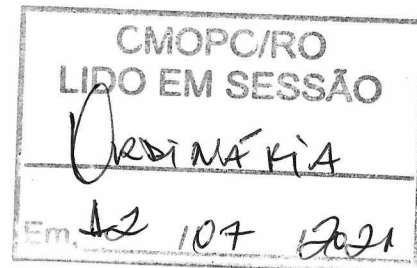 CMOPC/RO
LIDO EM SESSÃO
ORDINÁRIA
Em, 12 / 07 / 2021